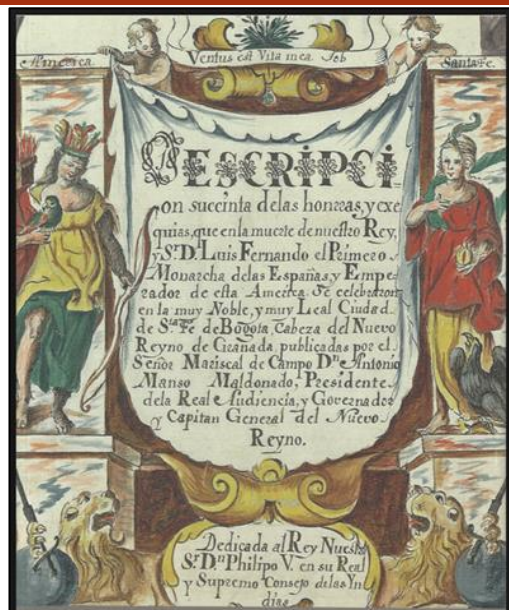 America.
Ventus est Vita mea. Job
Santa Fe.
DESCRIPCI-
on succinta delas honras, y exe
quias, que en la muerte de nuestro Rey,
y Sr. D. Luis Fernando el Primero
Monarcha delas Españas, y Empe-
rador de esta America. Se celebraron
en la muy Noble, y muy Leal Ciudad
de Sta. Fe de Bogota, Cabeza del Nuevo
Reyno de Granada, publicadas por el
Señor Mariscal de Campo Dn. Antonio
Manso Maldonado, Presidente
dela Real Audiencia, y Governador
y Capitan General del Nuevo
Reyno.
Dedicada al Rey Nuestro
Sr. Dn. Philipo V. en su Real
y Supremo Consejo delas Yn
dias